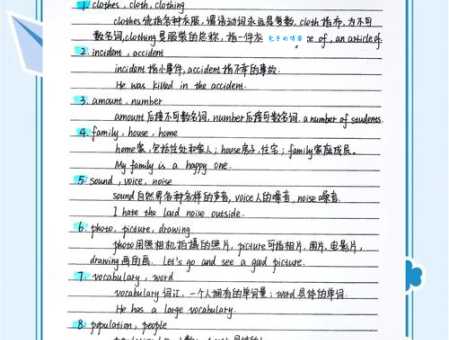 1. clothes, cloth, clothing
clothes统指各种衣服,谓语动词永远是复数, cloth指布,为不可
数名词, clothing是服装的总称,指一件衣 ce of, an article of
2. incident, accident
incident指小事件, accident指不幸的事故.
He was killed in the accident.
3. amount, number
amount后接不可数名词, number后接可数名词. a number of students
4. family, house, home
home家,包括住处和家人; house房子,住宅; family家庭成员。
My family is a happy one.
5. sound, voice, noise
sound自然界各种各样的声音, voice人的嗓音, noise噪音.
I hate the loud noise outside.
6. photo, picture, drawing
photo用照相机拍摄的照片, picture可指相片,图片,电影片,
drawing画的画. Let's go and see a good picture.
7. vocabulary, word
vocabulary词汇,一个人拥有的单词量, word具体的单词.
He has a large vocabulary.
8. population, people